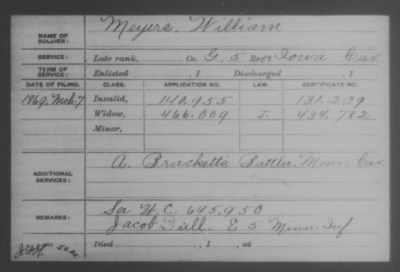 Meyers, William
NAME OF SOLDIER:
SERVICE: Late rank, Co. G. 5 Reg't Iowa Cav
TERM OF SERVICE: Enlisted , 1 Discharged , 1
DATE OF FILING. CLASS. APPLICATION NO. LAW. CERTIFICATE NO.
1869, Mch. 7 Invalid, 140.955 131.209
Widow, 466.009 J. 434.782
Minor,
ADDITIONAL SERVICES: A. Brackett's Battln. Minn Cav.
REMARKS: See W. C. 645.950
Jacob Dill. E 5 Minn Inf
Died , 1 , at